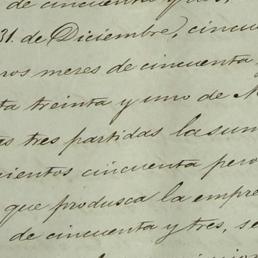 de cincuenta y
31. de Diciembre, cincu
ros meses de cincuenta
ta treinta y uno de
as tres partidas la sum
cientos cincuenta pero
que produsca la empre
de cincuenta y tres, se